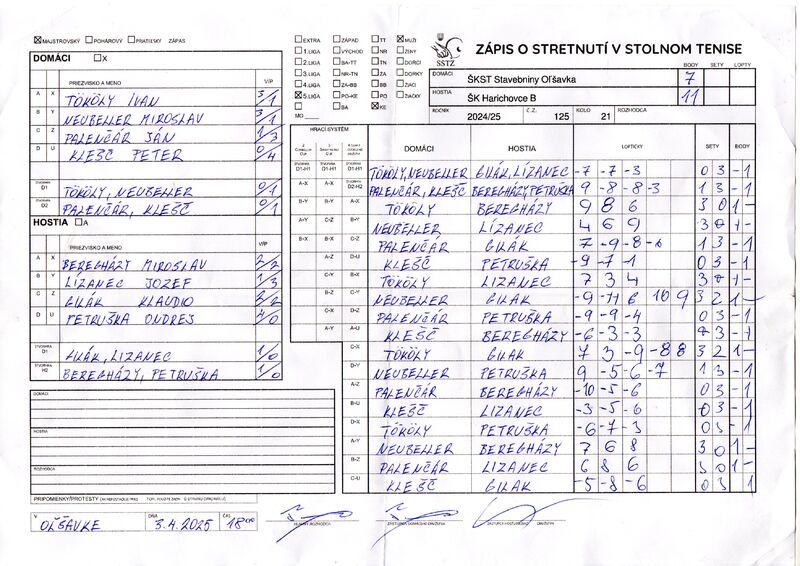 MAJSTROVSKÝ POHÁROVÝ PRIATEĽSKÝ ZÁPAS
DOMÁCI X
PRIEZVISKO A MENO V/P
A X TÖKÖLY IVAN 3/1
B Y NEUBELLER MIROSLAV 3/1
C Z PALENČÁR JÁN 1/3
D U KLEŠČ PETER 0/4
ŠTVORHRA D1 TÖKÖLY, NEUBELLER 0/1
ŠTVORHRA D2 PALENČÁR, KLEŠČ 0/1
HOSTIA A
PRIEZVISKO A MENO V/P
A X BEREGHÁZY MIROSLAV 2/2
B Y LÍZANEC JOZEF 1/3
C Z GILÁK KLAUDIO 2/2
D U PETRUŠKA ONDREJ 4/0
ŠTVORHRA H1 GILÁK, LIZANEC 1/0
ŠTVORHRA H2 BEREGHÁZY, PETRUŠKA 1/0
DOMÁCI
HOSTIA
ROZHODCA
PRIPOMIENKY/PROTESTY
V OĽŠAVKE DŇA 3.4.2025 ČAS 18:00
HLAVNÝ ROZHODCA
EXTRA ZÁPAD TT MUŽI
1.LIGA VÝCHOD NR ŽENY
2.LIGA BA-TT TN DORCI
3.LIGA NR-TN ZA DORKY
4.LIGA ZA-BB BB ŽIACI
5.LIGA PO-KE PO ŽIAČKY
BA KE
MO
SSTZ
ZÁPIS O STRETNUTÍ V STOLNOM TENISE
BODY SETY LOPTY
DOMÁCI ŠKST Stavebniny Oľšavka 7
HOSTIA ŠK Harichovce B 11
ROČNÍK 2024/25 Č.Z. 125 KOLO 21 ROZHODCA
HRACÍ SYSTÉM DOMÁCI HOSTIA LOPTIČKY SETY BODY
D1-H1 D1-H1 D1-H1 TÖKÖLY, NEUBELLER GILÁK, LÍZANEC -7 -7 -3 0 3 - 1
A-X A-X D2-H2 PALENČÁR, KLEŠČ BEREGHÁZY, PETRUŠKA 9 -8 -8 -3 1 3 - 1
B-Y B-Y A-X TÖKÖLY BEREGHÁZY 9 8 6 3 0 1 -
A-Y C-Z B-Y NEUBELLER LÍZANEC 4 6 9 3 0 1 -
B-X A-Y C-Z PALENČAR GILÁK 7 -9 -8 -6 1 3 - 1
B-X D-U KLEŠČ PETRUŠKA -9 -7 -1 0 3 - 1
C-X A-Y TÖKÖLY LÍZANEC 7 3 4 3 0 1 -
B-Z C-Y B-Z NEUBELLER GILÁK -9 -11 6 10 9 3 2 1 -
C-X D-X C-U PALENČÁR PETRUŠKA -9 -9 -4 0 3 - 1
C-Y A-U D-X KLEŠČ BEREGHÁZY -6 -3 -3 0 3 - 1
A-Z TÖKÖLY GILAK 7 3 -9 -8 8 3 2 1 -
B-U NEUBELLER PETRUŠKA 9 -5 -6 -7 1 3 - 1
C-X PALENČÁR BEREGHÁZY -10 -5 -6 0 3 - 1
D-Y KLEŠČ LIZANEC -3 -5 -6 0 3 - 1
A-U TÖKÖLY PETRUŠKA -6 -7 -3 0 3 - 1
B-X NEUBELLER BEREGHÁZY 7 6 8 3 0 1 -
C-Y PALENČÁR LIZANEC 6 8 6 3 0 1 -
D-Z KLEŠČ GILÁK -5 -8 -6 0 3 1